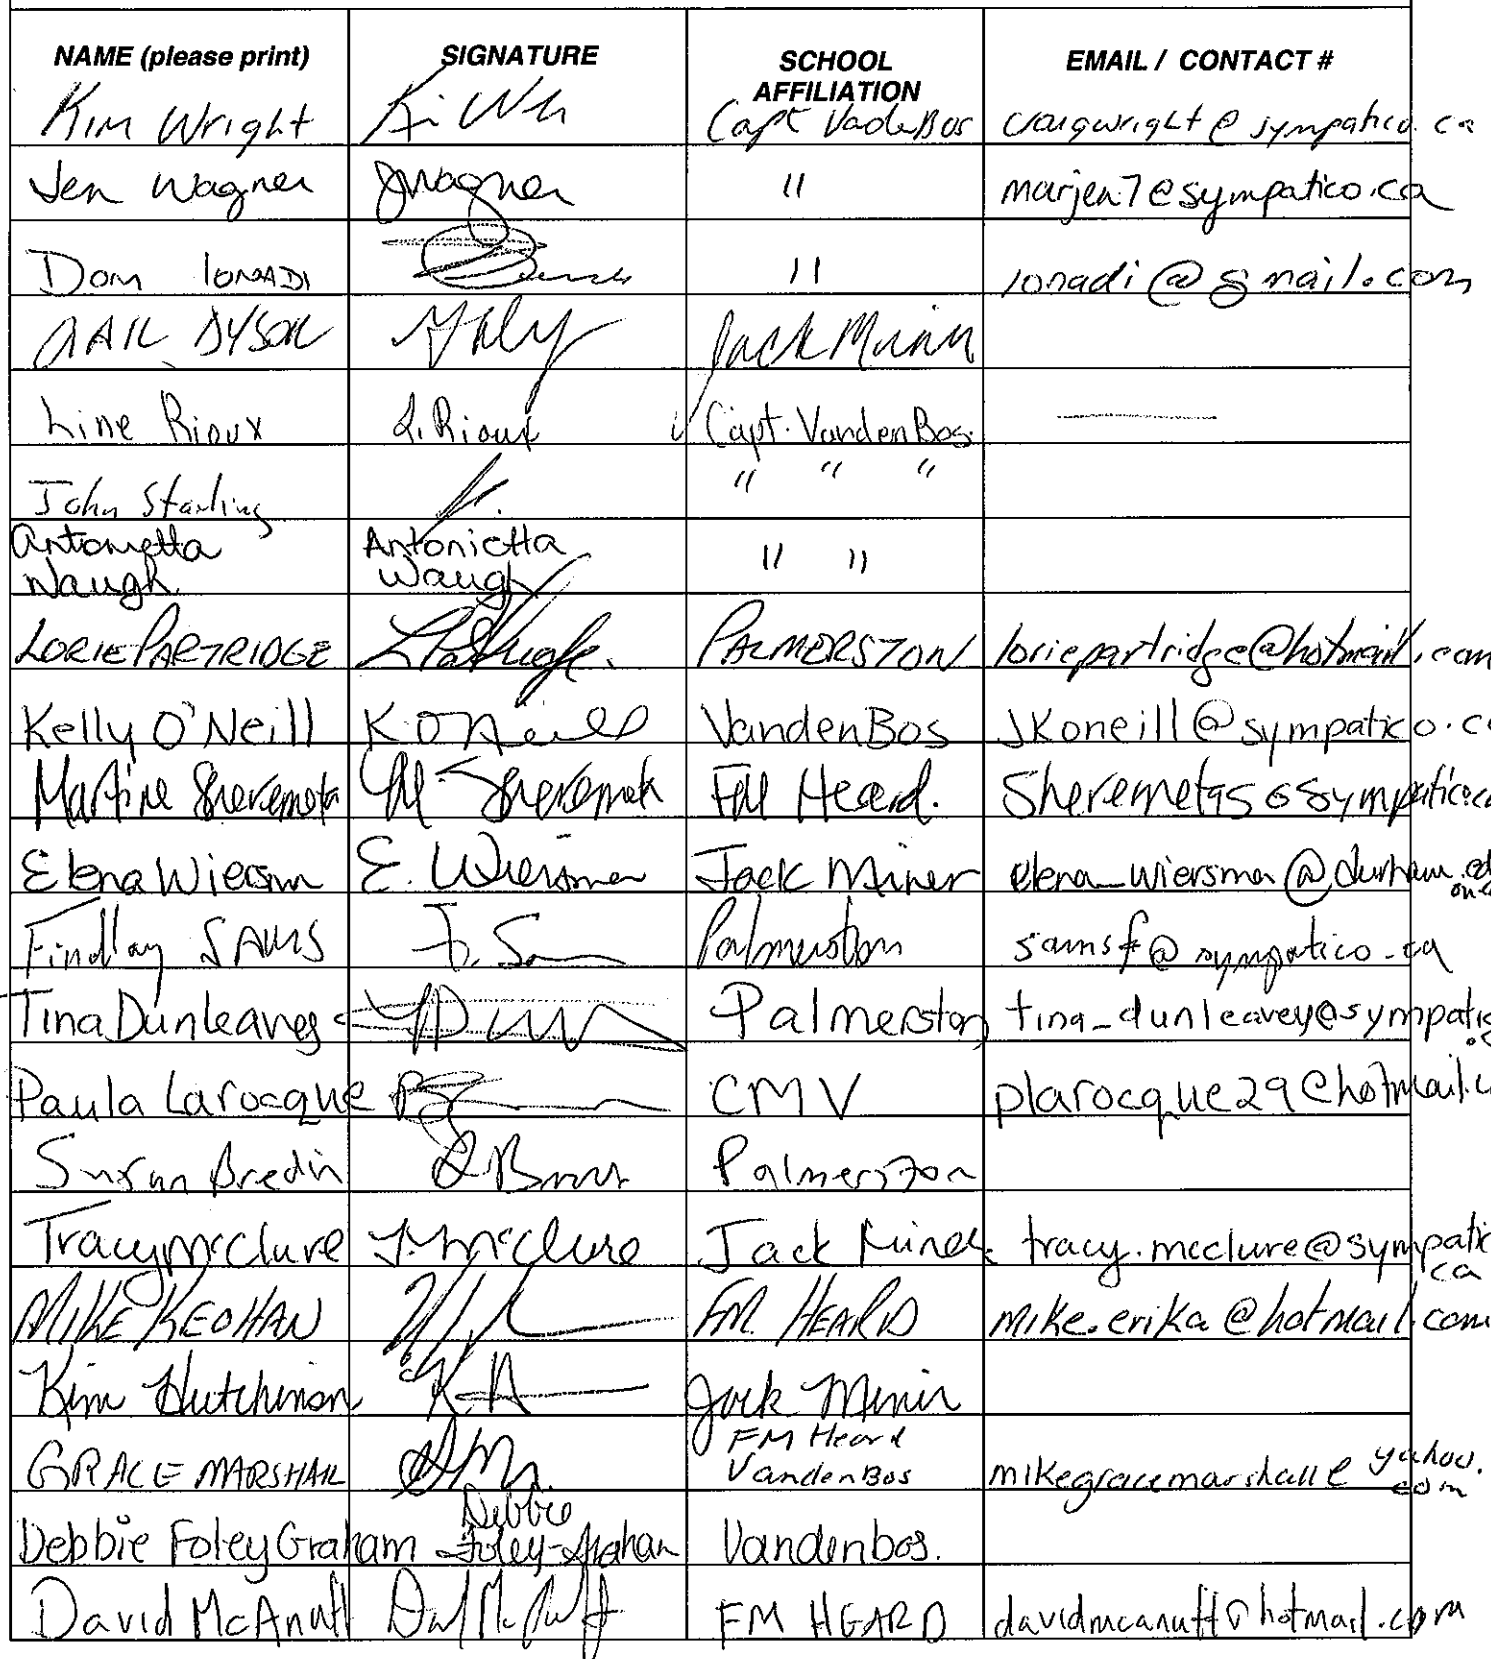 NAME (please print) SIGNATURE SCHOOL AFFILIATION EMAIL / CONTACT #
Kim Wright Capt VadeBos craigwright@sympatico.ca
Jen Wagner JWagner " marjen7@sympatico.ca
Dom Ionadi " ionadi@gmail.com
GAIL DYSON Jack Minn
Line Rioux L. Rioux Capt. VandenBos.
John Starling " " "
Antonietta Waugh. Antonietta Waugh " "
LORIE PARTRIDGE PALMERSTON loriepartridge@hotmail.com
Kelly O'Neill K O'Neill VandenBos JKoneill@sympatico.ca
Martine Sheremeta M. Sheremeta FM Heard. Sheremetas@sympatico.ca
Elena Wiersm E. Wiersma Jack Miner elena_wiersma@durham.ed
on.ca
Findlay SAMS F. Sams Palmerston samsf@sympatico.ca
Tina Dunleavey Palmerston tina_dunleavey@sympatic
.c
Paula Larocque CMV plarocque29@hotmail.c
Susan Bredin S Bredin Palmerston
Tracy McClure T. McClure Jack Miner tracy.mcclure@sympatic
ca
MIKE KEOHAN FM. HEARD mike.erika@hotmail.com
Kim Hutchinson K-H Jack Minir
GRACE MARSHALL GM. FM Heard VandenBos mikegracemarshall@yahoo.com
Debbie Foley Graham Debbie Foley-Graham Vandenbos.
David McAnutt FM HEARD davidmcanutt@hotmail.com